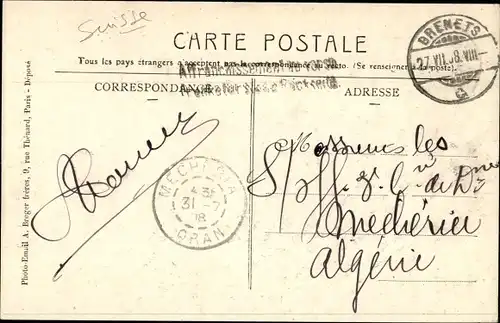 Suisse
CARTE POSTALE
Tous les pays étrangers n'acceptent pas la correspondance au recto. (Se renseigner à la poste).
CORRESPONDANCE
ADRESSE
BRENETS
27.VII.08.VIII-
Affranchissement au verso
MECHERIA
31 -7
08
ORAN
Messieurs les
Mechéria
Algérie
Photo-Email A. Berger frères, 9, rue Thénard, Paris - Déposé